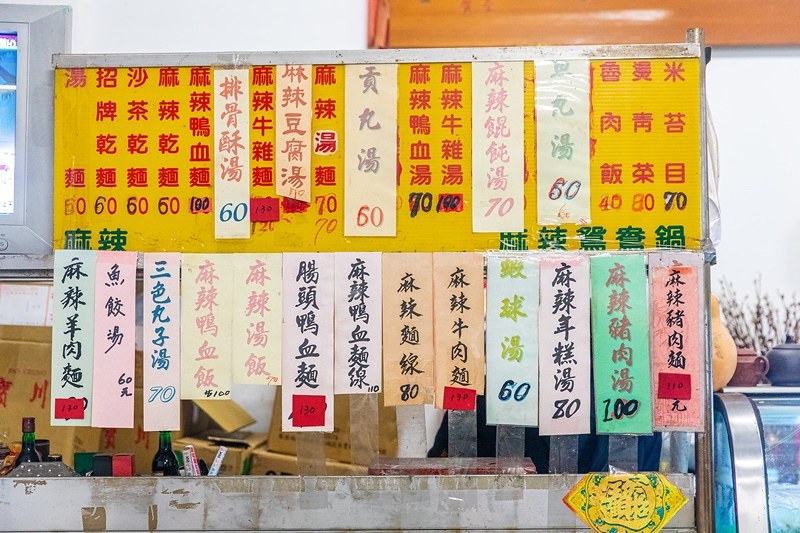 湯麵 60
招牌乾麵 60
沙茶乾麵 60
麻辣乾麵 60
麻辣鴨血麵 100
排骨酥湯 60
麻辣牛雜麵 130
麻辣豆腐湯 110
麻辣湯麵 70
貢丸湯 60
麻辣鴨血湯 70
麻辣牛雜湯 100
麻辣餛飩湯 70
魚丸湯 60
魯肉飯 40
燙青菜 80
米苔目 70
麻辣
麻辣鴛鴦鍋
麻辣羊肉麵 130
魚餃湯 60元
三色丸子湯 70
麻辣鴨血飯 $100
麻辣湯飯 70
腸頭鴨血麵 130
麻辣鴨血麵線 110
麻辣麵線 80
麻辣牛肉麵 130
蝦球湯 60
麻辣年糕湯 80
麻辣豬肉湯 100
麻辣豬肉麵 110元